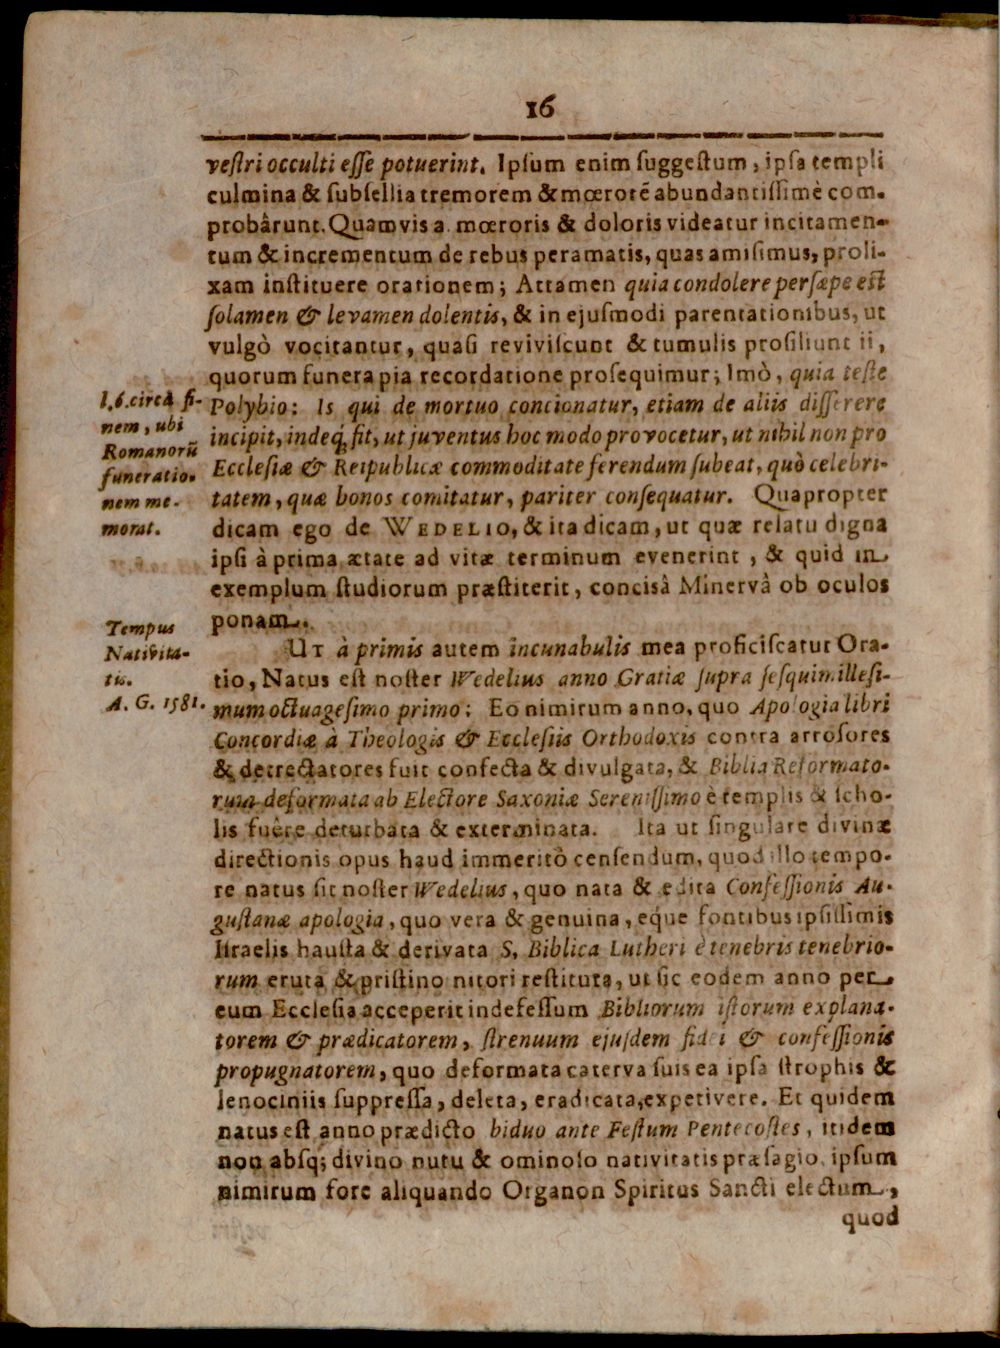 16
veſtri occulti eſſe potuerint. Ipſum enim ſuggeſtum, ipſa templi
culmina & ſubſellia tremorem & mœrorē abundantiſſimè com-
probârunt. Quamvis a. mœroris & doloris videatur incitamen-
tum & incrementum de rebus peramatis, quas amiſimus, proli-
xam inſtituere orationem; Attamen quia condolere perſæpe eſt
ſolamen & levamen dolentis, & in ejuſmodi parentationibus, ut
vulgò vocitantur, quaſi reviviſcunt & tumulis proſiliunt ii,
quorum funera pia recordatione proſequimur; Imò, quia teſte
Polybio: Is qui de mortuo concionatur, etiam de aliis diſſerere
incipit, indeq́; fit, ut juventus hoc modo provocetur, ut nihil non pro
Eccleſiæ & Reipublicæ commoditate ferendum ſubeat, quò celebri-
tatem, quæ bonos comitatur, pariter conſequatur. Quapropter
dicam ego de WEDELIO, & ita dicam, ut quæ relatu digna
ipſi à prima ætate ad vitæ terminum evenerint, & quid in
exemplum ſtudiorum præſtiterit, concisâ Minervâ ob oculos
ponam.
l. 6. circa fi-
nem, ubi
Romanorū
funeratio-
nem me-
morat.
UT à primis autem incunabulis mea proficiſcatur Ora-
tio, Natus eſt noſter Wedelius anno Gratiæ ſupra ſeſquimilleſi-
mum octuageſimo primo: Eo nimirum anno, quo Apologia libri
Concordiæ à Theologis & Eccleſiis Orthodoxis contra arroſores
& detrectatores fuit confecta & divulgata, & Biblia Reformato-
rum deformata ab Electore Saxoniæ Sereniſſimo è templis & ſcho-
lis fuêre deturbata & exterminata. Ita ut ſingulare divinæ
directionis opus haud immeritò cenſendum, quod illo tempo-
re natus ſit noſter Wedelius, quo nata & edita Confeſſionis Au-
guſtanæ apologia, quo vera & genuina, eque fontibus ipſiſſimis
Iſraelis hauſta & derivata S. Biblica Lutheri è tenebris tenebrio-
rum eruta & priſtino nitori reſtituta, ut ſic eodem anno per
eum Eccleſia acceperit indefeſſum Bibliorum iſtorum explana-
torem & prædicatorem, ſtrenuum ejuſdem fidei & confeſſionis
propugnatorem, quo deformata caterva ſuis ea ipſa ſtrophis &
lenociniis ſuppreſſa, deleta, eradicata, expetivere. Et quidem
natus eſt anno prædicto biduo ante Feſtum Pentecoſtes, itidem
non abſq; divino nutu & ominoſo nativitatis præſagio, ipſum
nimirum fore aliquando Organon Spiritus Sancti electum,
Tempus
Nativita-
tis.
A. G. 1581.
quod